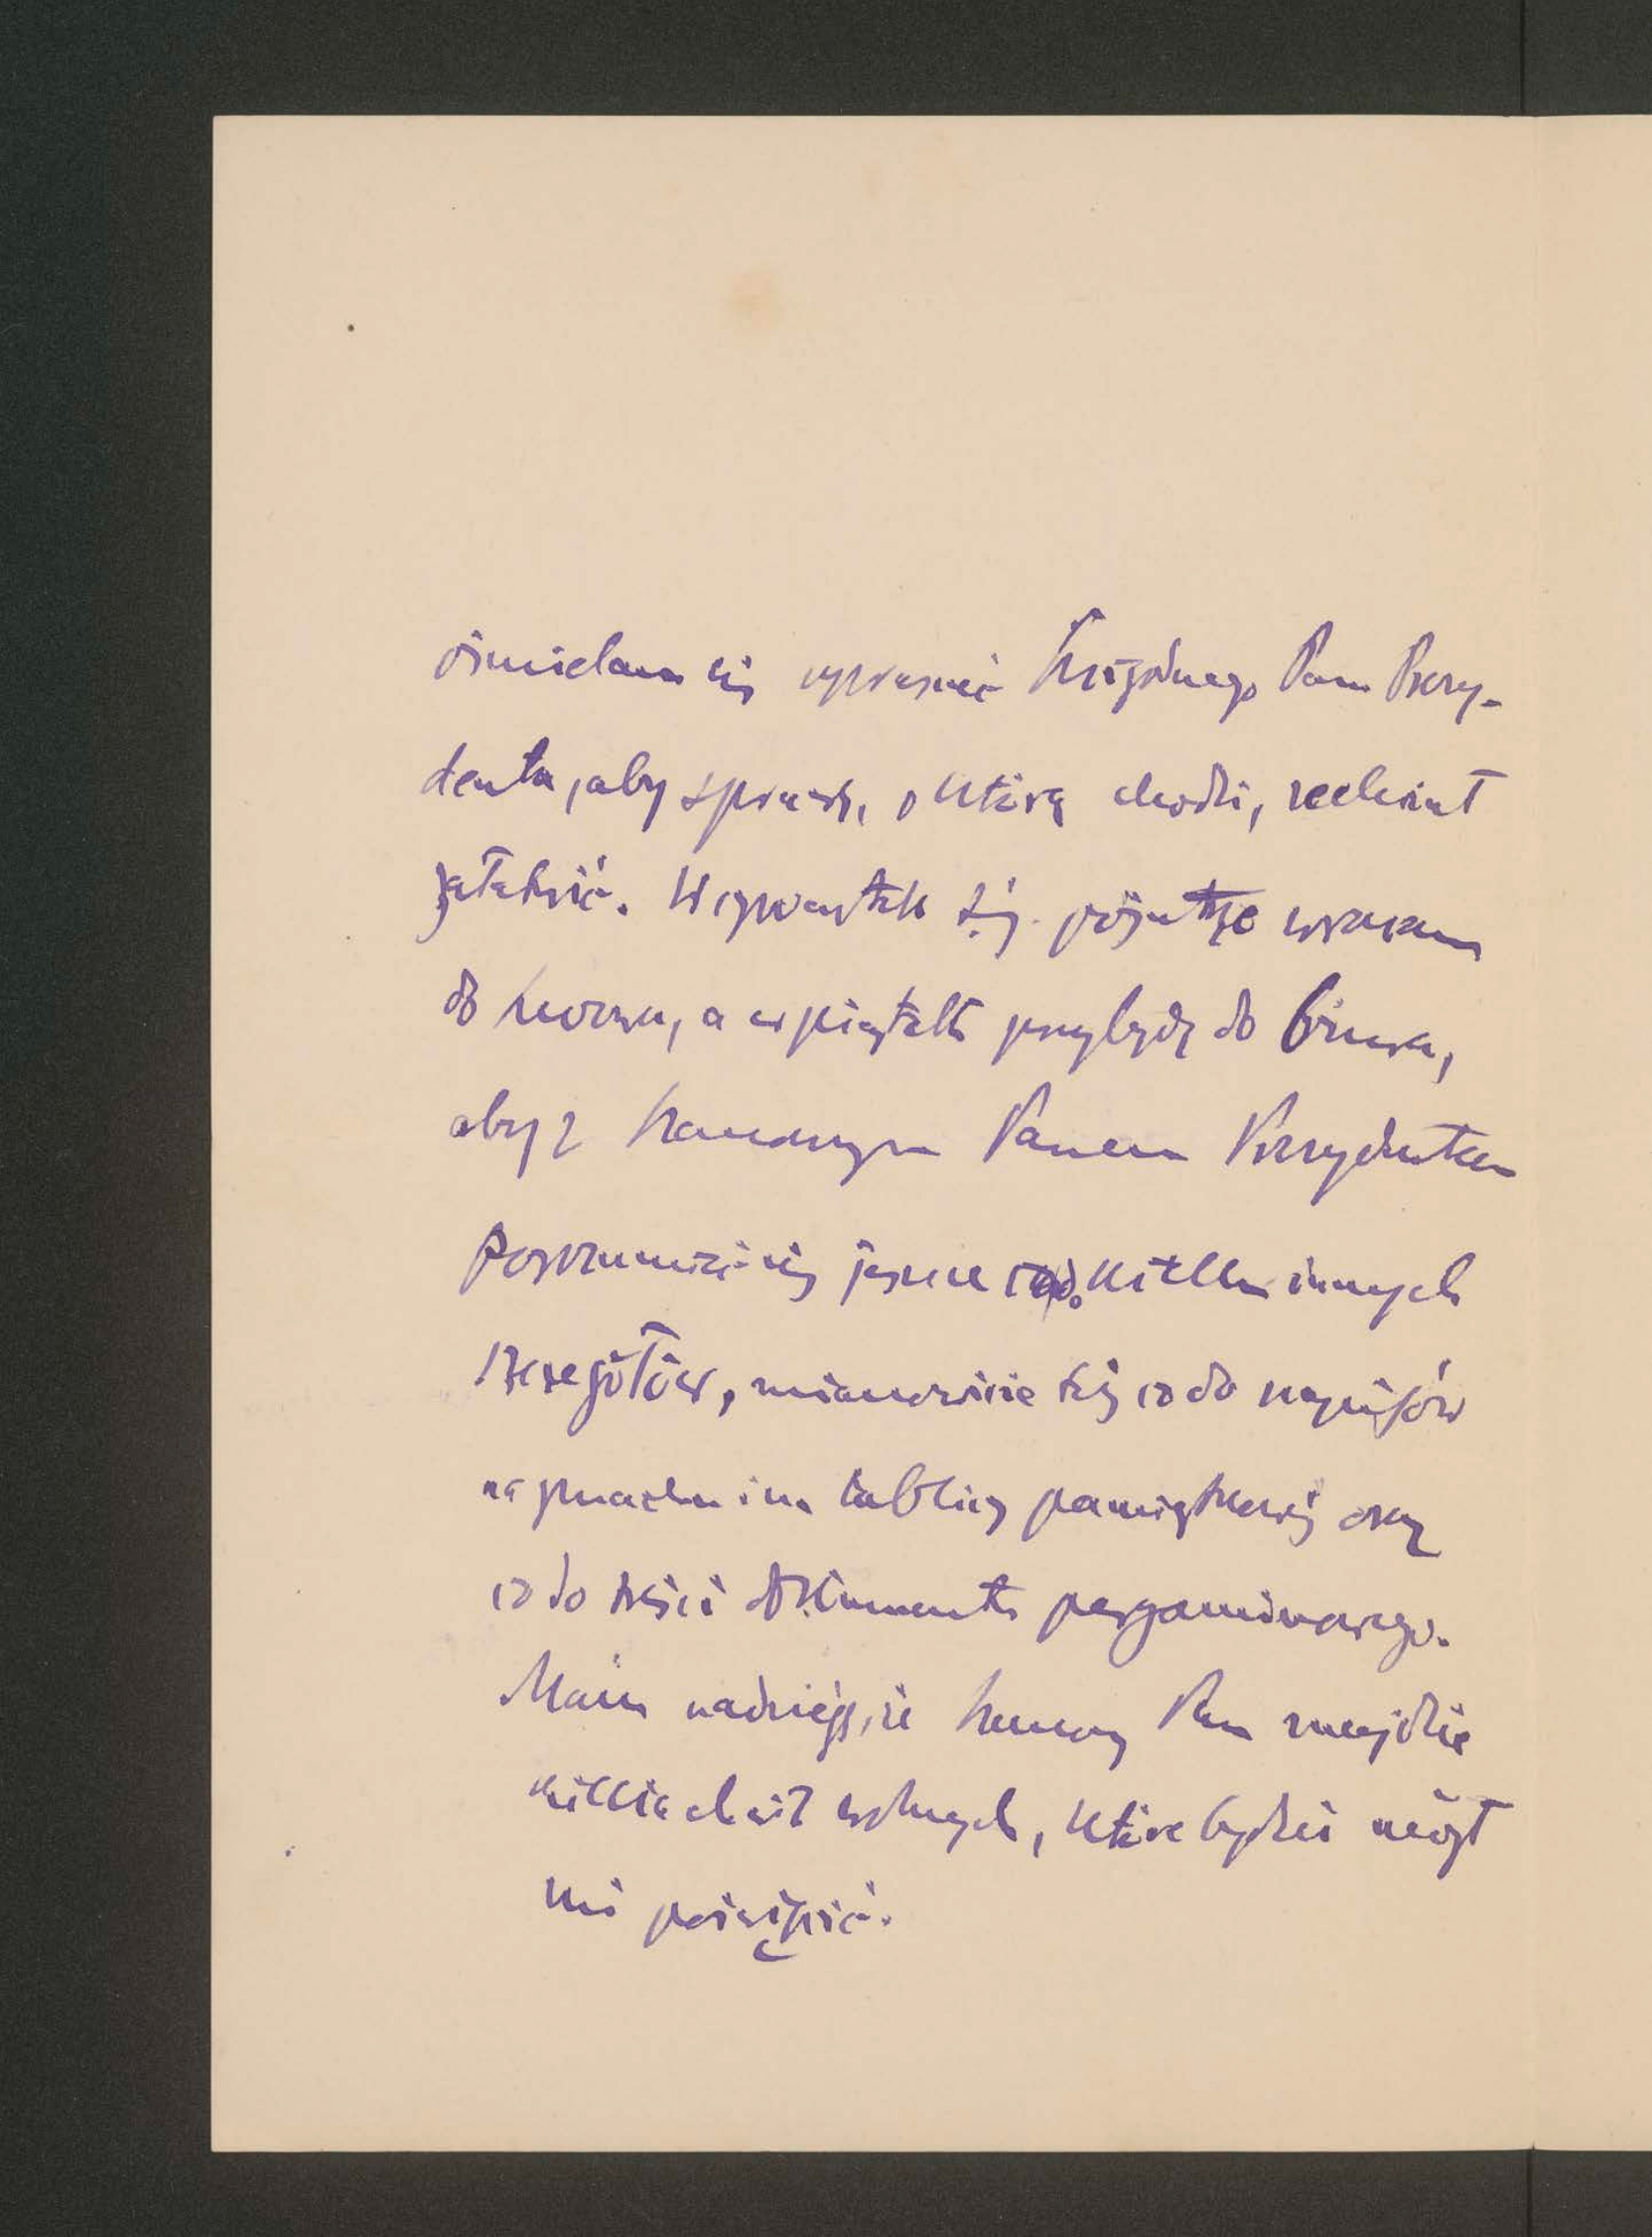 ośmielam się uprosić Czcigodnego Pana Prezy-
denta, aby sprawę, o którą chodzi, zechciał
załatwić. W czwartek t.j. pojutrze wracam
do Lwowa, a w piątek przybędę do biura,
aby z Panem Prezydentem
porozumieć się jeszcze co do kilku innych
szczegółów, mianowicie też co do napisów
na gmachu i na tablicy pamiątkowej oraz
co do treści dokumentu pergaminowego.
Mam nadzieję, że Pan znajdzie
kilka chwil wolnych, które będzie mógł
mi poświęcić.